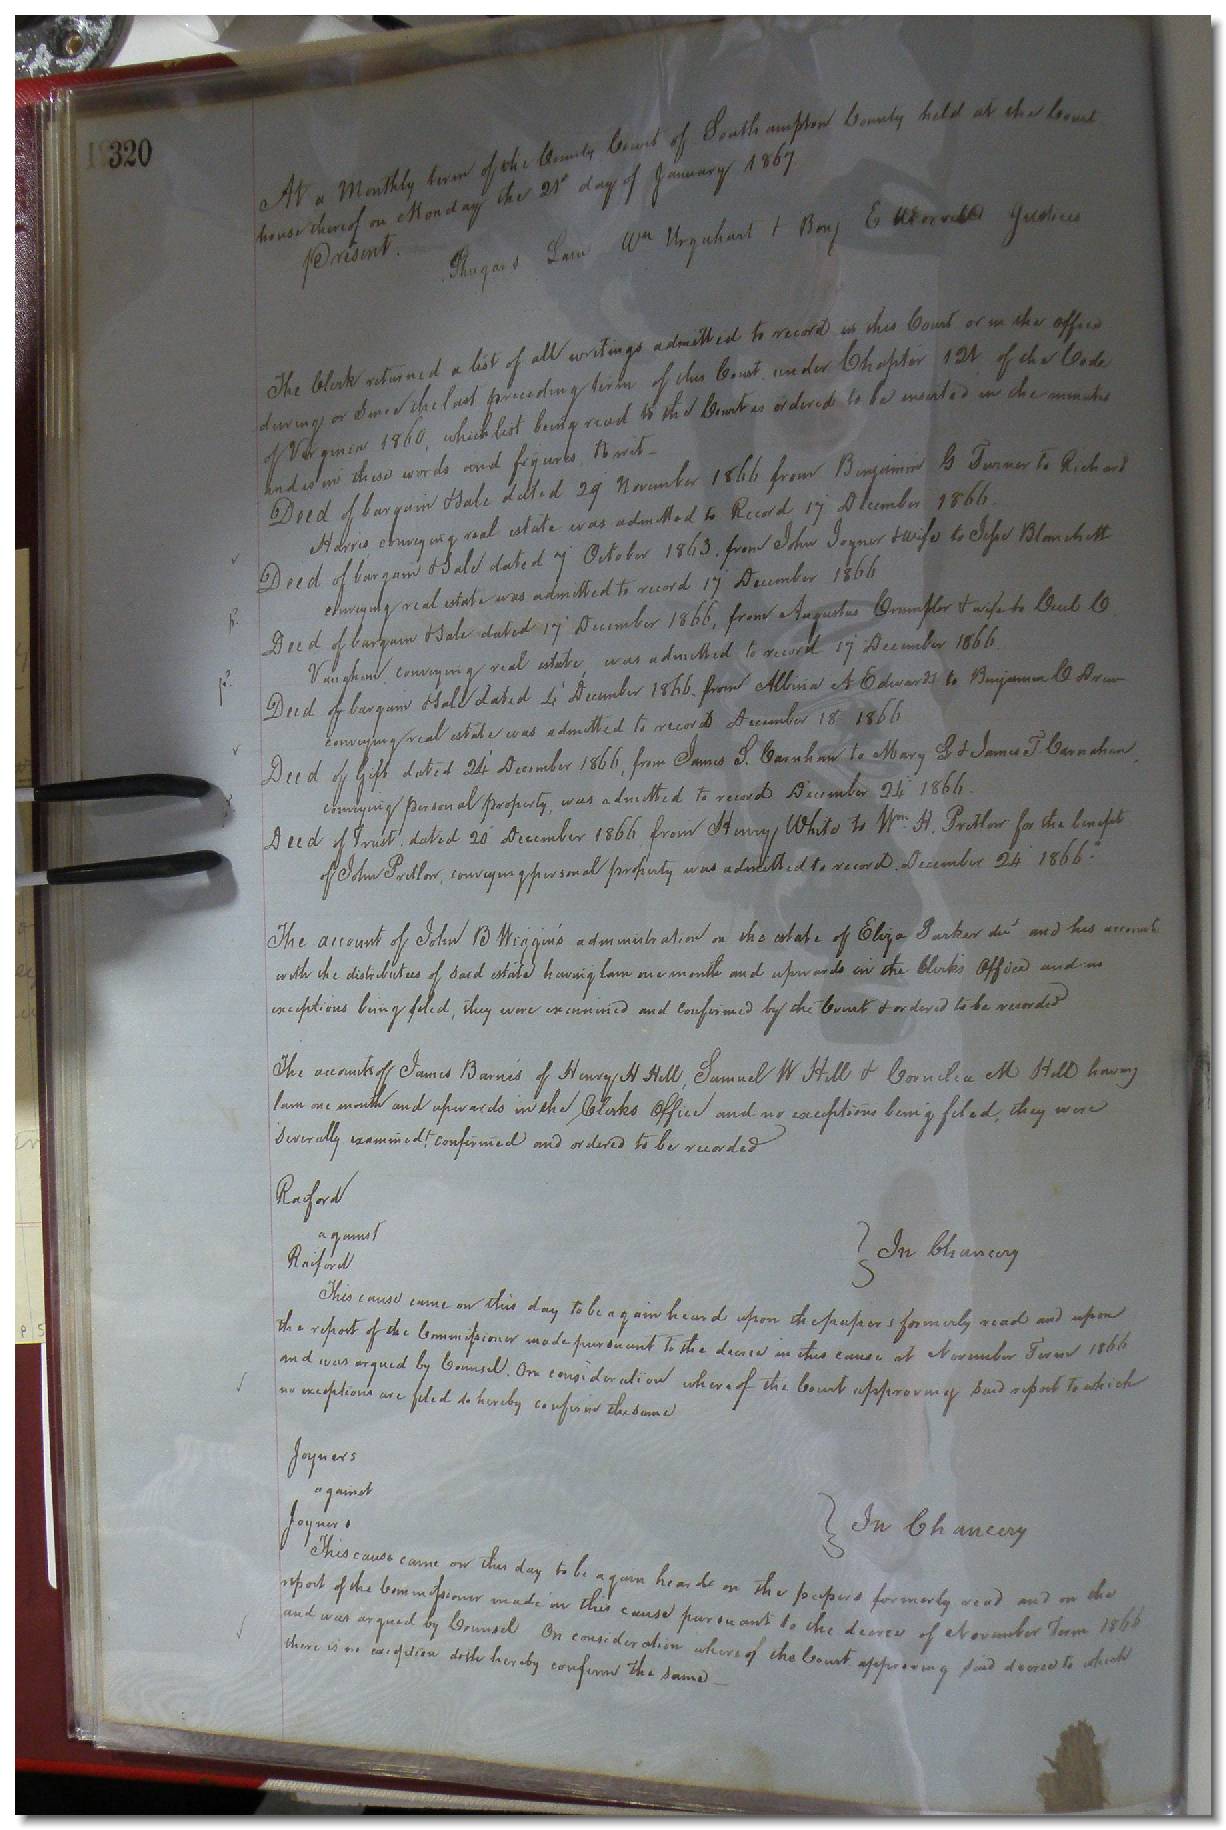 320
At a Monthly term of the County Court of Southampton County held at the Court
house thereof on Monday the 21st day of January 1867
Present.
Wm Urquhart & Benj E Justices
The Clerk returned a list of all writings admitted to record in this Court or in the office
during or since the last preceding term of this Court under Chapter 121 of the Code
of Virginia 1860, which list being read to the Court is ordered to be inserted in the minutes
and is in these words and figures, to wit -
Deed of bargain & Sale dated 29 November 1866 from Benjamin G Turner to Richard
Harris conveying real estate was admitted to Record 17 December 1866.
Deed of bargain & Sale dated 7 October 1863. from John Joyner & wife to Jesse Blanchett
conveying real estate was admitted to record 17 December 1866
Deed of bargain & Sale dated 17 December 1866, from Augustus Crumpler & wife to Cecil C
Vaughan conveying real estate, was admitted to record 17 December 1866.
Deed of bargain & Sale dated 4 December 1866. from Albina A Edwards to Benjamin C Drew
conveying real estate was admitted to record December 18 1866
Deed of Gift dated 24 December 1866, from James S. Carnhan to Mary G & James T Carnahan,
conveying personal property, was admitted to record December 24 1866.
Deed of Trust dated 20 December 1866 from Henry White to Wm. H. Pretlow for the benefit
of John Pretlow, conveying personal property was admitted to record. December 24 1866.
The account of John B Wiggins administration on the estate of Eliza Parker decd and his account
with the distributees of said estate having lain one month and upwards in the Clerks Office and no
exceptions being filed, they were examined and confirmed by the Court & ordered to be recorded
The accounts of James Barnes of Henry H Hill, Samuel W Hill & Cornelia M Hill having
lain one month and upwards in the Clerks Office and no exceptions being filed, they were
severally examined, confirmed and ordered to be recorded
Raiford
against
Raiford
In Chancery
This cause came on this day to be again heard upon the papers formerly read and upon
the report of the Commissioner made pursuant to the decree in this cause at November Term 1866
and was argued by Counsel. On consideration whereof the Court approving said report to which
no exceptions are filed do hereby confirm the same
Joyners
against
Joyners
In Chancery
This cause came on this day to be again heard on the papers formerly read and on the
report of the Commissioner made in this cause pursuant to the decree of November Term 1866
and was argued by Counsel On consideration whereof the Court approving said decree to which
there is no exception doth hereby confirm the same -